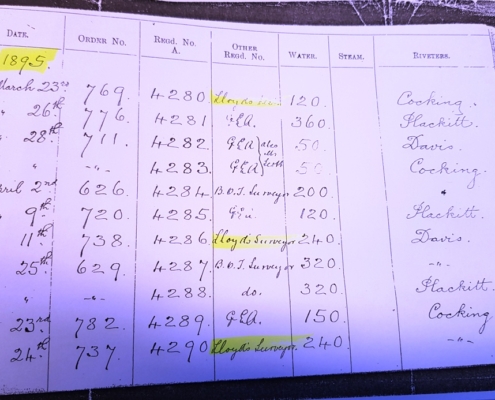 DATE. ORDER NO. REGD. NO. A. OTHER REGD. NO. WATER. STEAM. RIVETERS.
1895.
March 23rd 769. 4280. Lloyd's 120. Cocking.
" 26th 776. 4281. 360. Hackitt.
" 28th 711. 4282. 50. Davis.
" -"- 4283. 50. Cocking.
April 2nd 626. 4284. B.O.T. Surveyor 200. "
" 9th 720. 4285. 120. Hackitt.
11th 738. 4286. Lloyd's Surveyor. 240. Davis.
25th 629. 4287. B.O.T. Surveyor 320. -"-
" -"- 4288. do. 320. Hackitt.
23rd 782. 4289. 150. Cocking
24th 737. 4290. Lloyd's Surveyor. 240. -"-